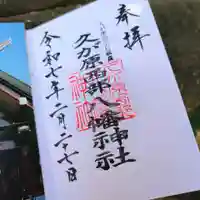 奉拝
久が原西部八幡神社
令和七年二月二十七日